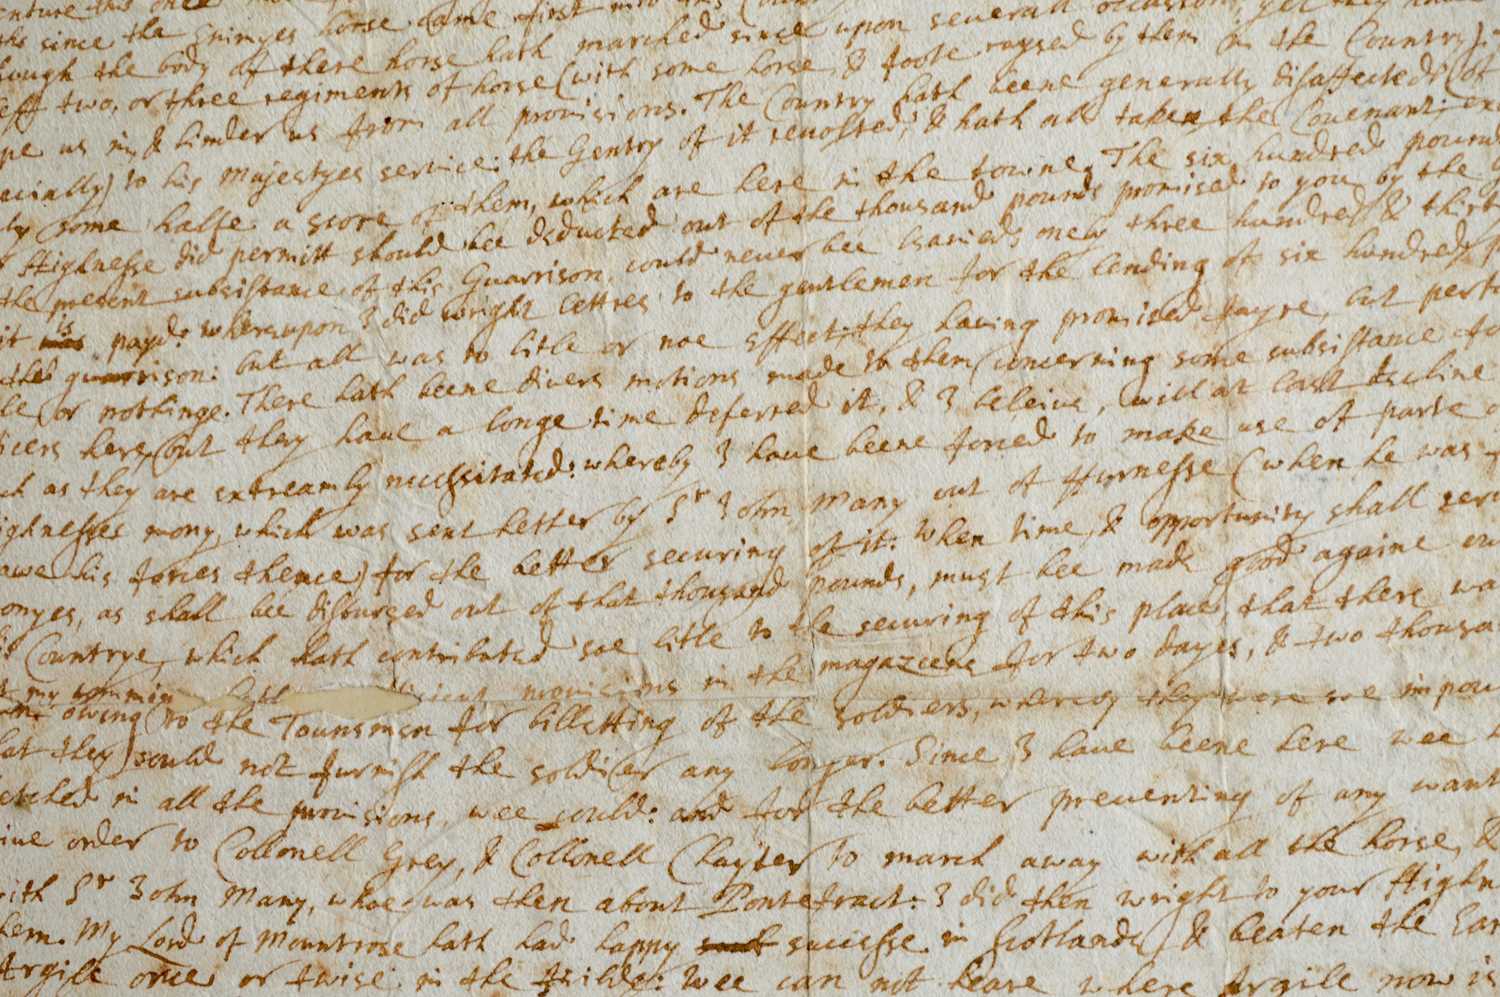 since the Enimyes horse came first into this
hough the body of there horse hath marched since upon severall occasions, yet they
two, or three regiments of horse (with some horse, & foote raysed by them in the Country)
us in, & hinder us from all provisions. The Country hath beene generally disaffected (
ecially) to his Majestyes service: the Gentry of it revolted, & hath all taken the Covenant,
some halfe a score of them, which are here in the towne. The six hundred pound
Highnesse did permitt should bee deducted out of the thousand pounds promised to you by the
the present subsistance of this Guarrison, could never bee leavied, onely three hundred & thirt
it is payd: whereupon I did wright lettres to the gentlemen for the lending of six hundred
the guarrison: but all was to litle or noe effect: they having promised fayre, but perfo
le or nothinge. There hath beene divers motions made to them concerning some subsistance fo
icers here, but they have a longe time deferred it, & I beleive, will at last decline
uch as they are extreamly necessitated: whereby I have beene forced to make use of parte o
ighnesses mony, which was sent hether by Sr John Many out of Furnesse (when he was
awe his forces thence) for the better securing of it. When time, & opportunity shall serv
onyes, as shall bee disbursed out of that thousand pounds, must bee made good againe
Countrye, which hath contributed soe litle to the securing of this place, that there wa
my comming hath provisions in the magazeene for two dayes, & two thousa
owing to the Tounsmen for billetting of the soldiers, whereby they were soe impou
hat they could not furnish the soldier any longer. Since I have beene here wee
etched in all the provisions, wee could: and for the better preventing of any want
ive order to Collonell Grey, & Collonell Clayter to march away with all the horse, &
with Sr John Many, whoe was then about Pontefract: I did then wright to your Highn
hem. My Lord of Mountrose hath had happy successe in Scotland, & beaten the Ear
Argile once or twise in the feilde: Wee can not heare where Argile now is